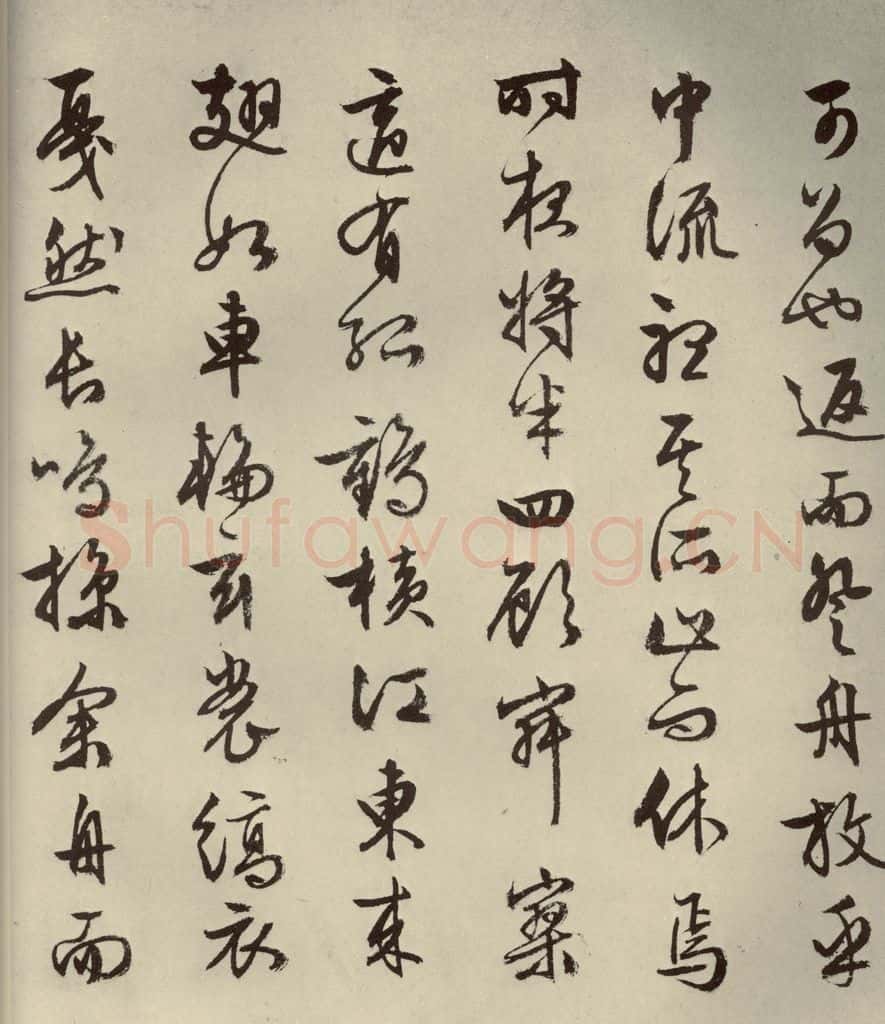 可留也返而登舟放乎
中流聽其所止而休焉
時夜將半四顧寂寥
適有孤鶴橫江東來
翅如車輪玄裳縞衣
戛然長鳴掠余舟而
Shufawang.CN